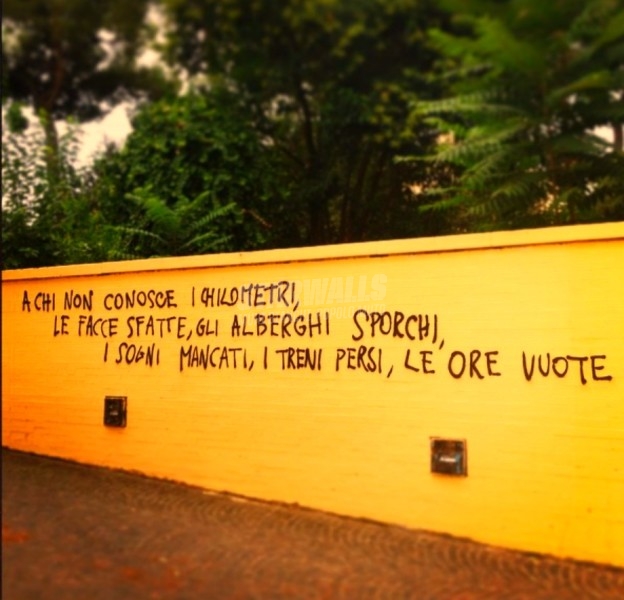 A CHI NON CONOSCE I CHILOMETRI,
LE FACCE SFATTE, GLI ALBERGHI SPORCHI,
I SOGNI MANCATI, I TRENI PERSI, LE ORE VUOTE